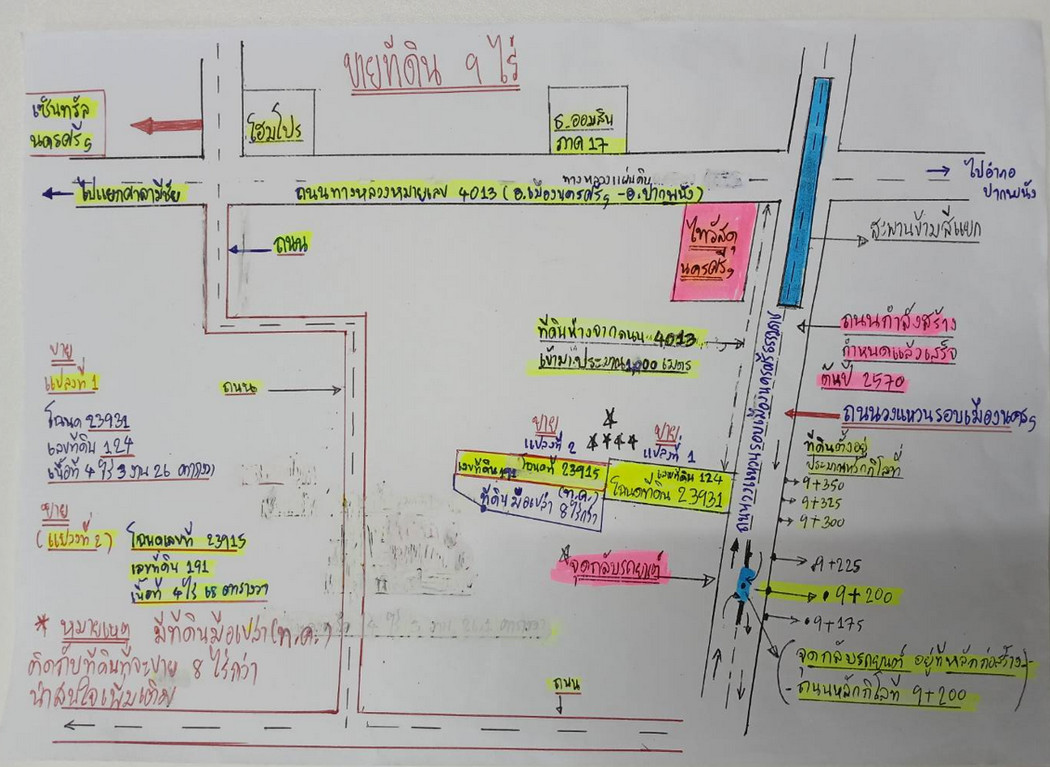 ขายที่ดิน 9 ไร่
เซ็นทรัล
นครศรีฯ
โฮมโปร
ธ.ออมสิน
ภาค 17
ทางหลวงแผ่นดิน
ไปแยกศาลามีชัย
ถนนทางหลวงหมายเลข 4013 (อ.เมืองนครศรีฯ -อ.ปากพนัง)
ไปอำเภอ
ปากพนัง
สะพานข้ามสี่แยก
ไทวัสดุ
นครศรีฯ
ถนน
ที่ดินห่างจากถนน 4013
เข้ามาประมาณ เมตร
ถนนกำลังสร้าง
กำหนดแล้วเสร็จ
ต้นปี 2570
ถนนวงแหวนรอบเมืองนครฯ
ถนนวงแหวนรอบเมืองนครศรีธรรมราช
ขาย
แปลงที่ 1
โฉนด 23931
เลขที่ดิน 124
เนื้อที่ 4 ไร่ 3 งาน 26 ตารางวา
ถนน
ขาย
แปลงที่ 2
ขาย
แปลงที่ 1
เลขที่ดิน 191 โฉนดที่ 23915
เลขที่ดิน 124
โฉนดที่ดิน 23931
ที่ดินมือเปล่า (ท.ค.) 8 ไร่กว่า
ที่ดินตั้งอยู่
ประมาณหลักกิโลที่
9+350
9+325
9+300
ขาย
(แปลงที่ 2)
โฉนดเลขที่ 23915
เลขที่ดิน 191
เนื้อที่ 4 ไร่ 68 ตารางวา
* จุดกลับรถยนต์
9+225
9+200
9+175
* หมายเหตุ มีที่ดินมือเปล่า (ท.ค.)
ติดกับที่ดินที่จะขาย 8 ไร่กว่า
น่าสนใจเพิ่มเติม
(จุดกลับรถยนต์ อยู่ที่หลักก่อสร้าง
- ถนนหลักกิโลที่ 9+200)
ถนน